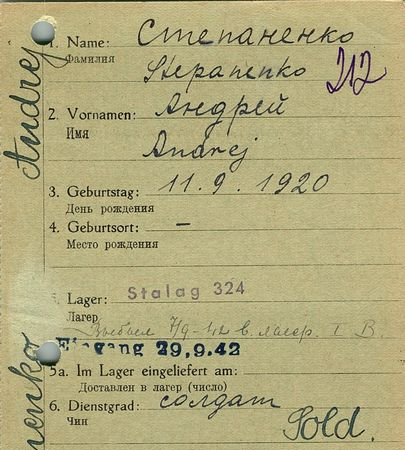 1. Name: Степаненко
Фамилия
Stepanenko
212
2. Vornamen: Андрей
Имя
Andrej
3. Geburtstag: 11.9.1920
День рождения
4. Geburtsort: —
Место рождения
5. Lager: Stalag 324
Лагер
Выбыл 7/9-42 в лагер. I B.
Eingang 29.9.42
5a. Im Lager eingeliefert am:
Доставлен в лагер (число)
6. Dienstgrad: солдат
Чин
Sold.
Andrej
nenko